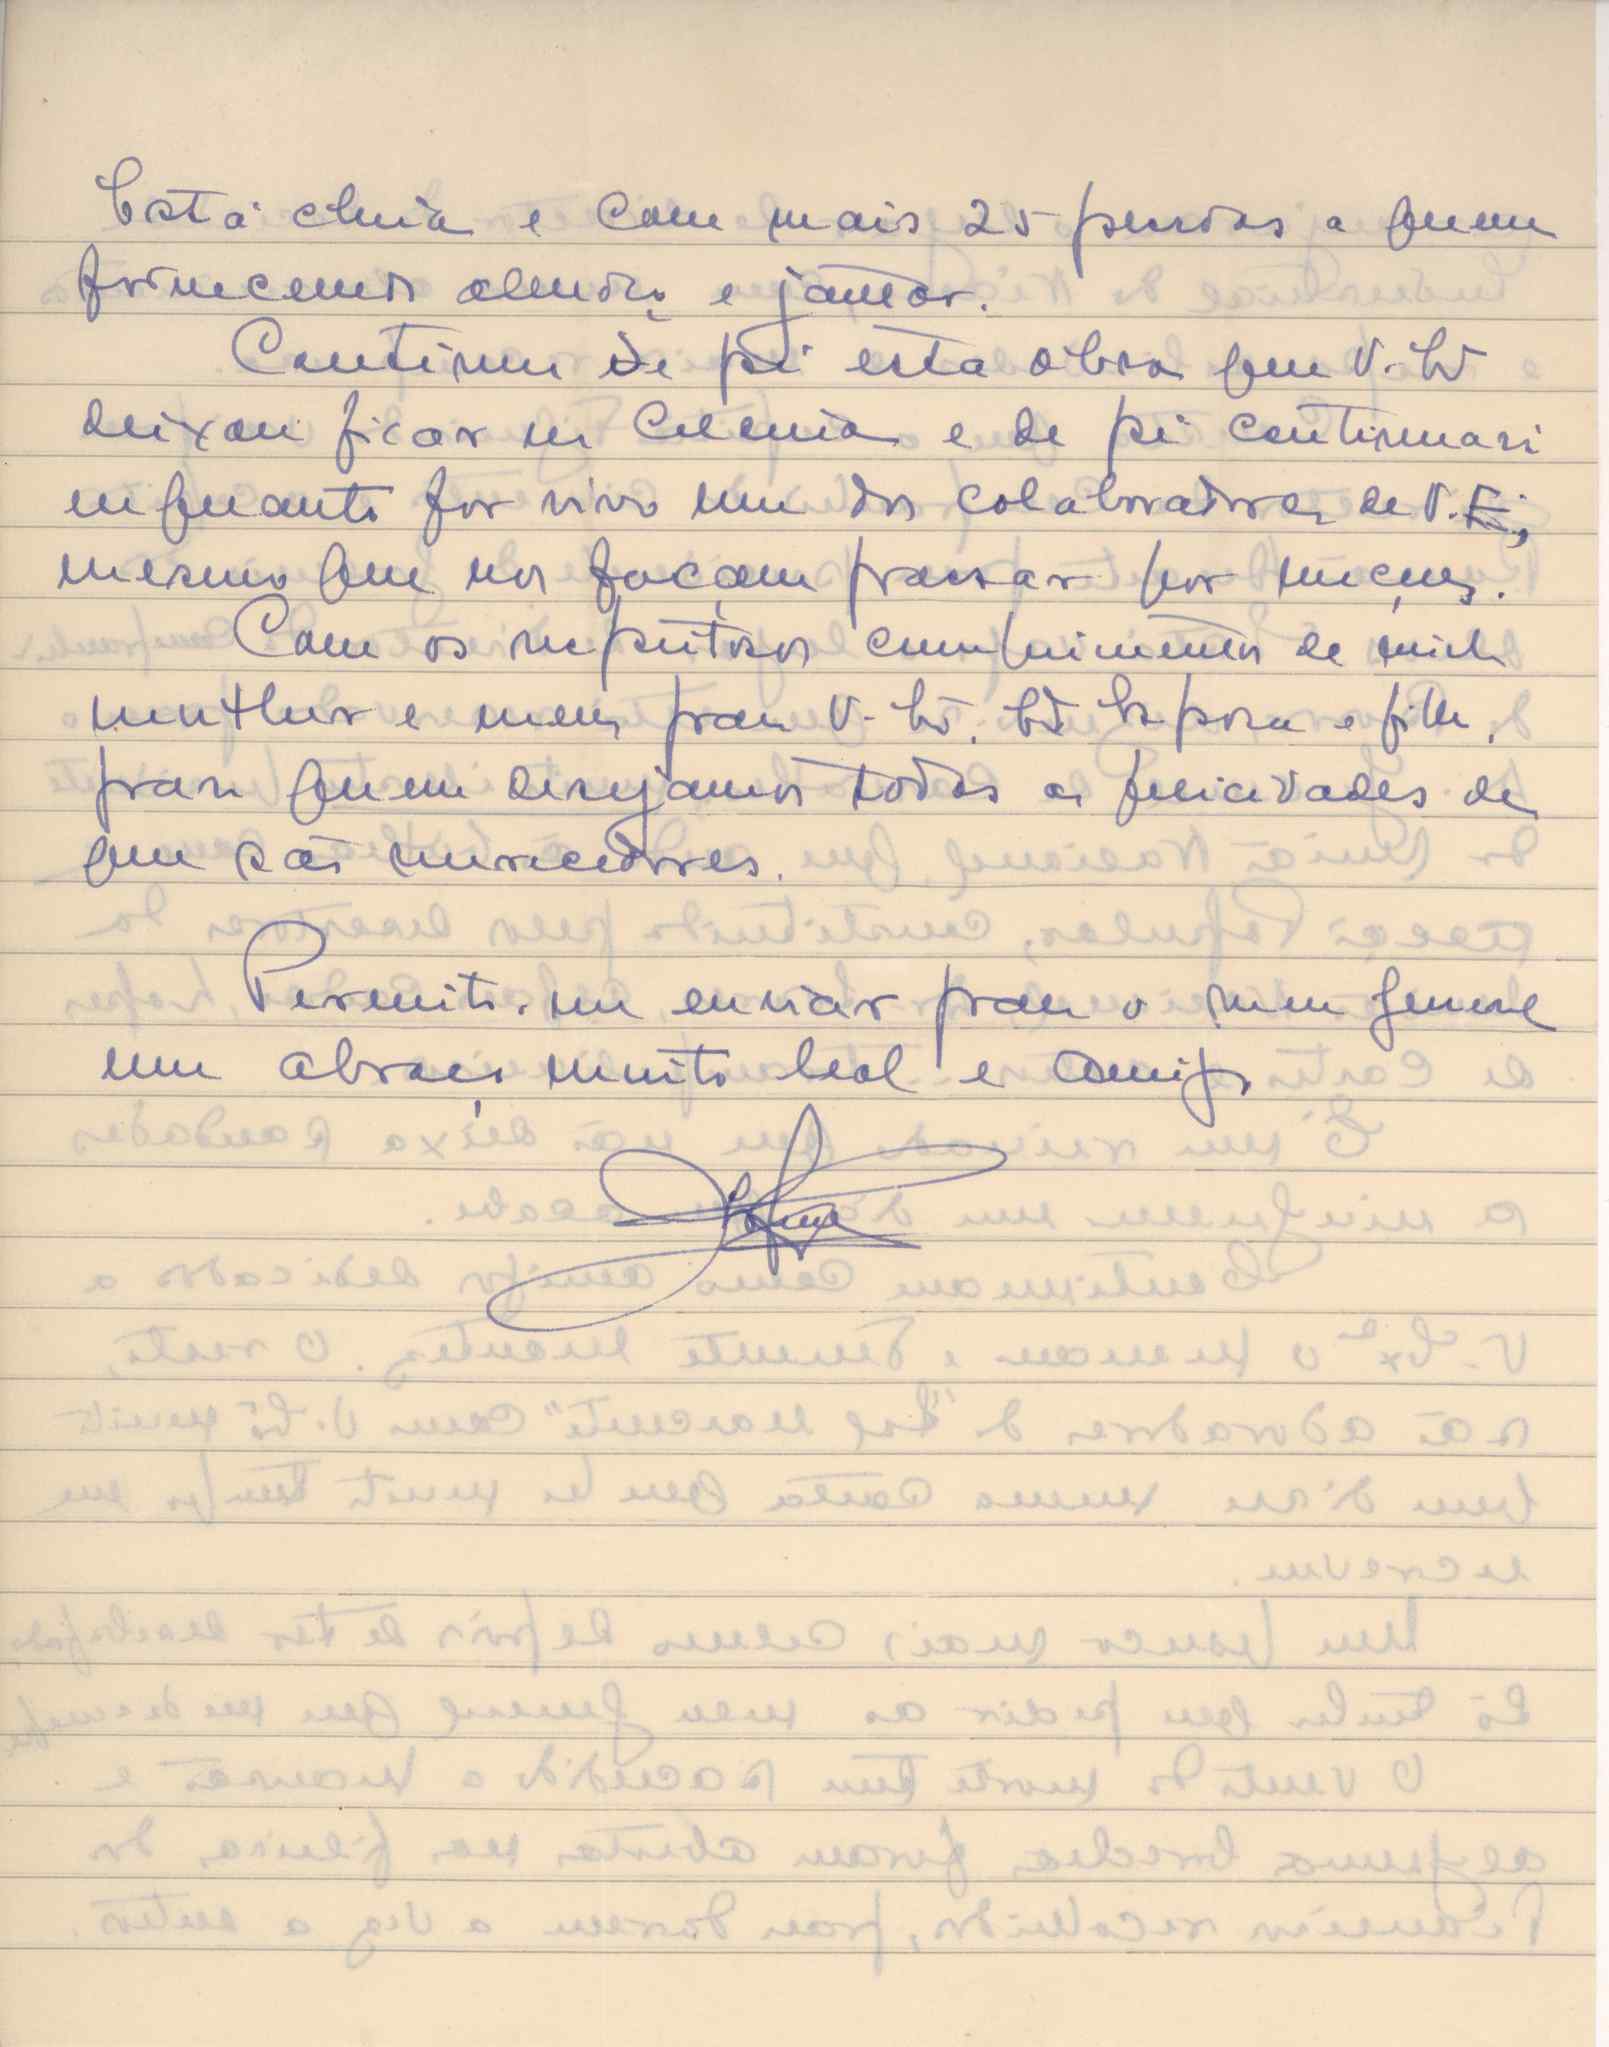 Está cheia e com mais 25 pessoas a quem
fornecemos almoço e jantar.
Continua de pé esta obra que V. Exª
deixou ficar na Colonia e de pé continuará
enquanto for vivo um dos colaboradores de V. E.,
mesmo que nos façam passar por maçons.
Com os respeitosos cumprimentos de minha
mulher e meus para V. Exª. Exª Esposa e filha,
para quem desejamos todas as felicidades de
que são merecedores.
Permita-me enviar para o meu General
um abraço muito leal e amigo